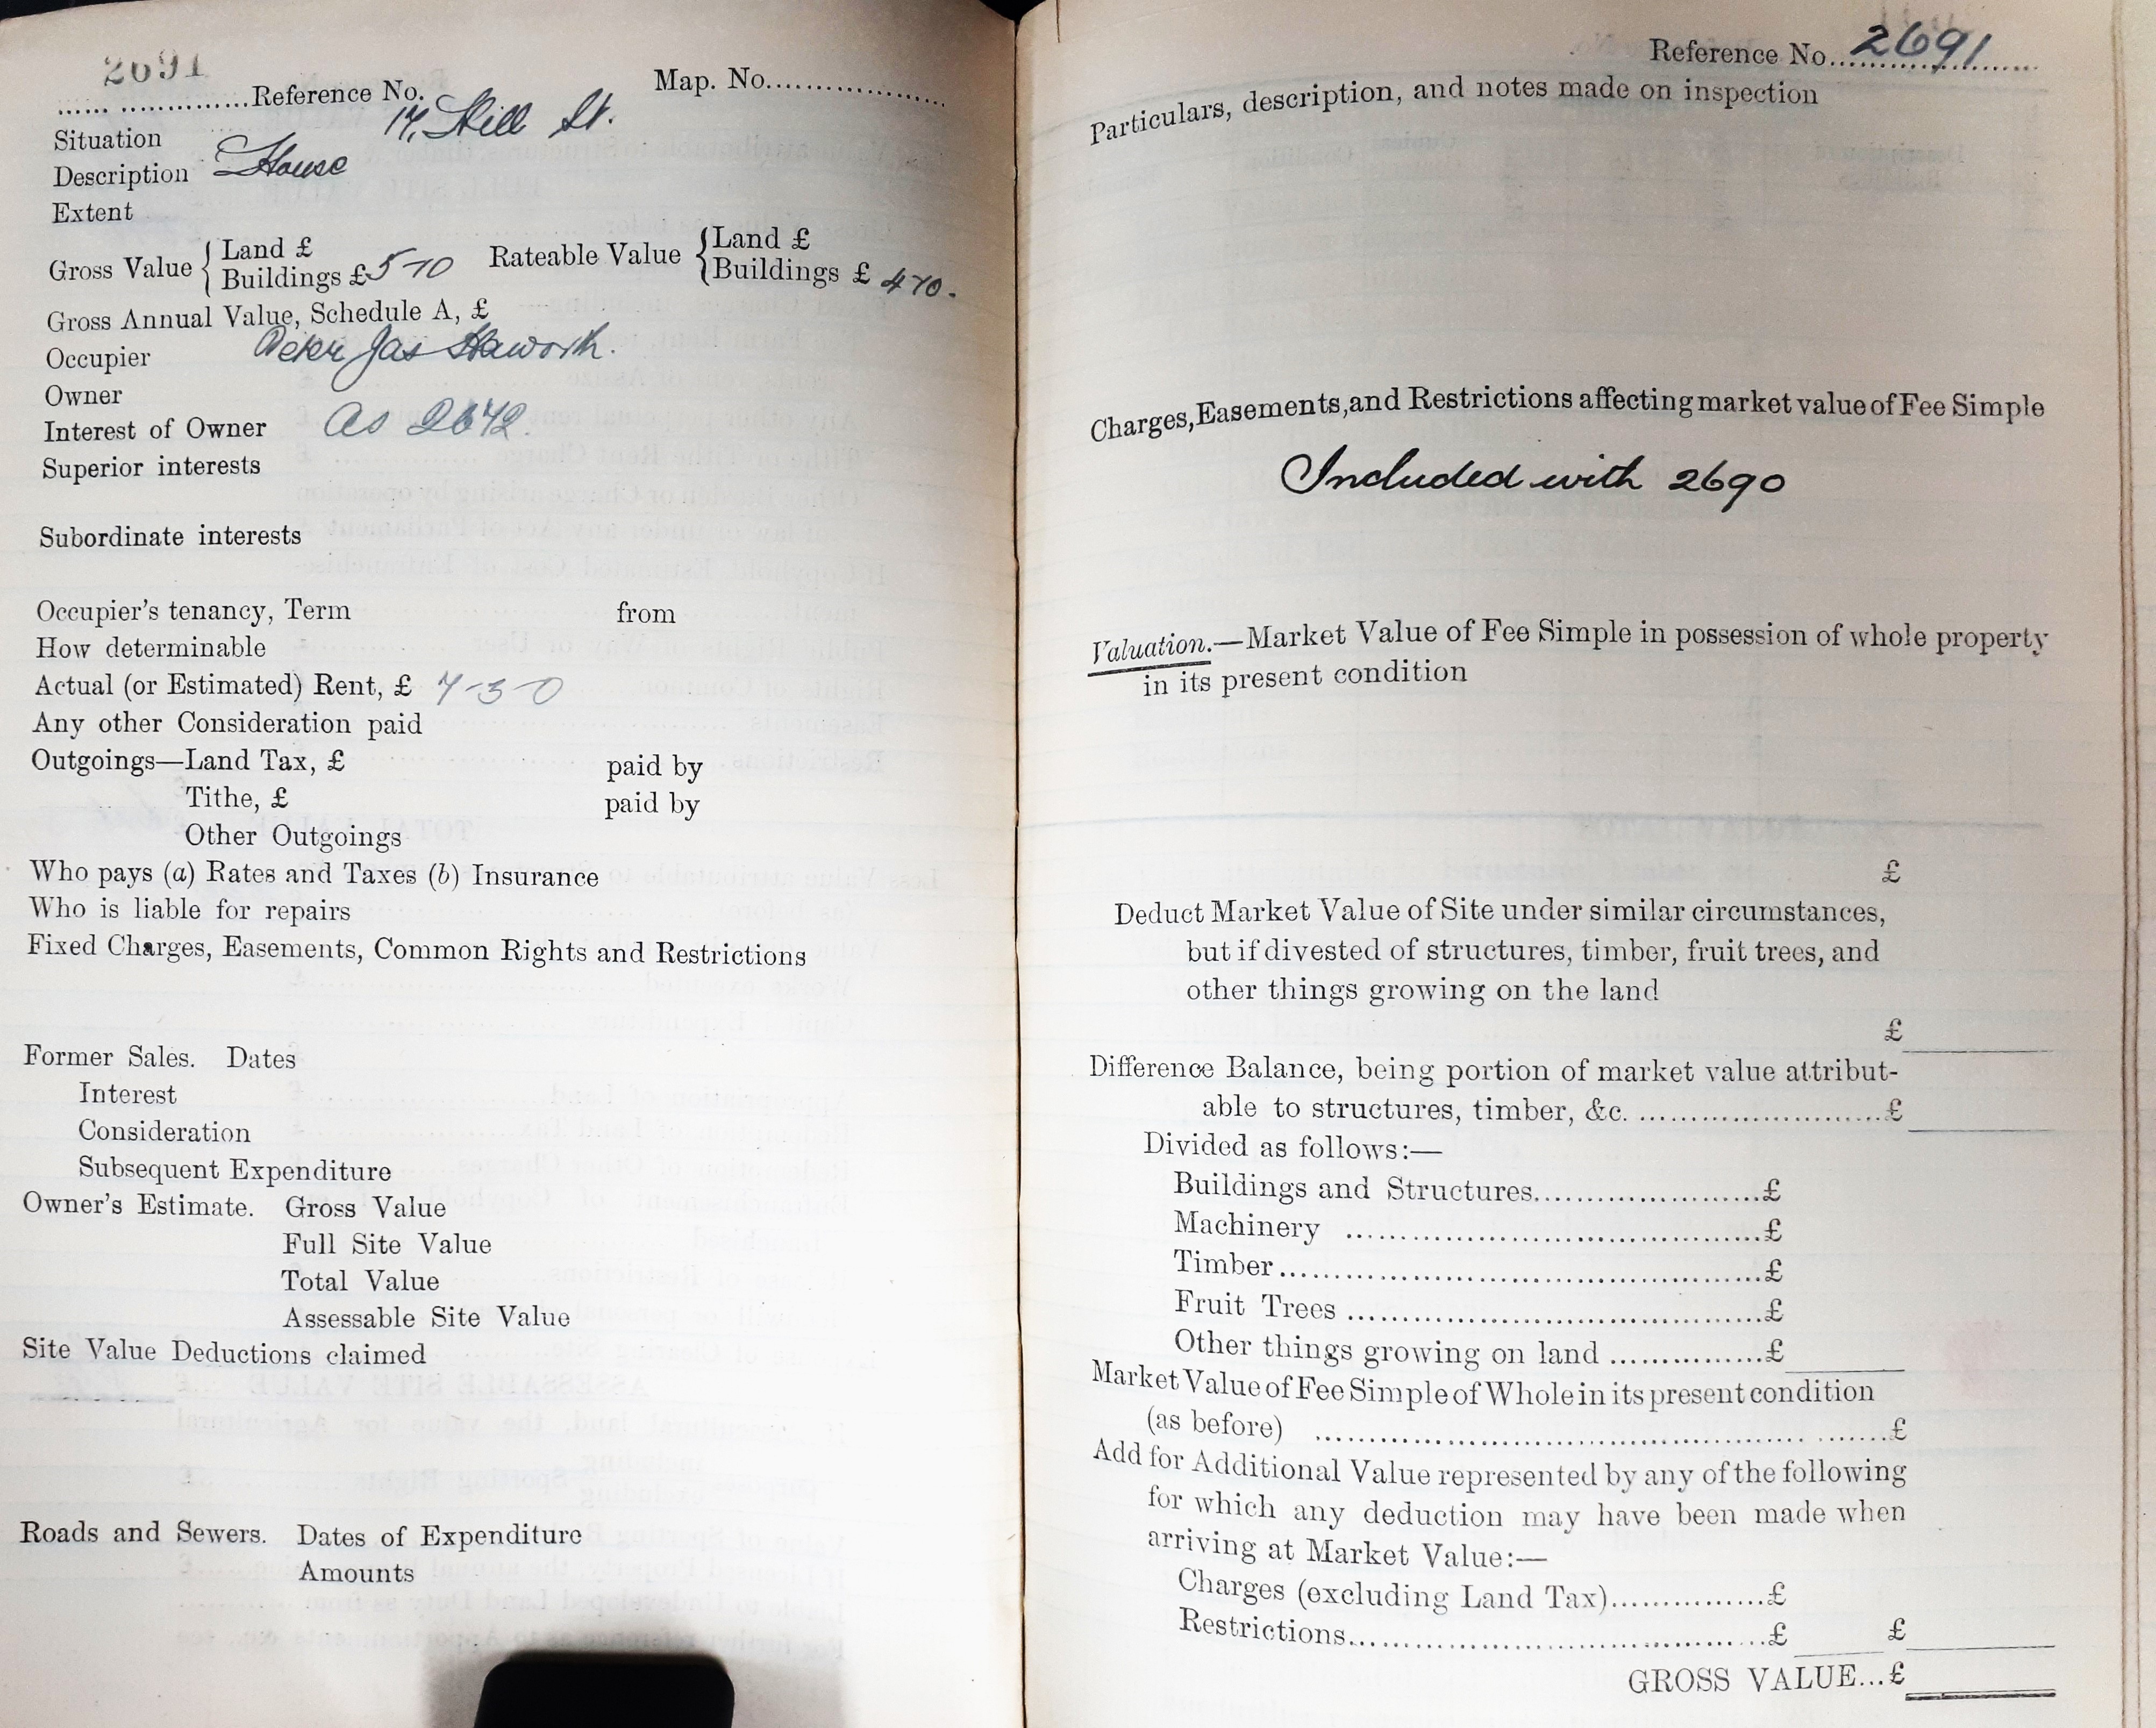 2691
...... ..............Reference No. Map. No......................
Situation 17, Hill St.
Description House
Extent
Gross Value { Land £ Rateable Value { Land £
Buildings £ 5-10 Buildings £ 4 10.
Gross Annual Value, Schedule A, £
Occupier Peter Jas Haworth.
Owner
Interest of Owner As 2672.
Superior interests
Subordinate interests
Occupier's tenancy, Term from
How determinable
Actual (or Estimated) Rent, £ 7-3-0
Any other Consideration paid
Outgoings—Land Tax, £ paid by
Tithe, £ paid by
Other Outgoings
Who pays (a) Rates and Taxes (b) Insurance
Who is liable for repairs
Fixed Charges, Easements, Common Rights and Restrictions
Former Sales. Dates
Interest
Consideration
Subsequent Expenditure
Owner's Estimate. Gross Value
Full Site Value
Total Value
Assessable Site Value
Site Value Deductions claimed
Roads and Sewers. Dates of Expenditure
Amounts
Reference No. 2691
Particulars, description, and notes made on inspection
Charges, Easements, and Restrictions affecting market value of Fee Simple
Included with 2690
Valuation.—Market Value of Fee Simple in possession of whole property
in its present condition
£
Deduct Market Value of Site under similar circumstances,
but if divested of structures, timber, fruit trees, and
other things growing on the land
£
Difference Balance, being portion of market value attribut-
able to structures, timber, &c. ..........................£
Divided as follows:—
Buildings and Structures.......................£
Machinery ..........................................£
Timber................................................£
Fruit Trees .........................................£
Other things growing on land ...............£
Market Value of Fee Simple of Whole in its present condition
(as before) ................................................ .......£
Add for Additional Value represented by any of the following
for which any deduction may have been made when
arriving at Market Value:—
Charges (excluding Land Tax)...............£
Restrictions..........................................£ £
GROSS VALUE...£